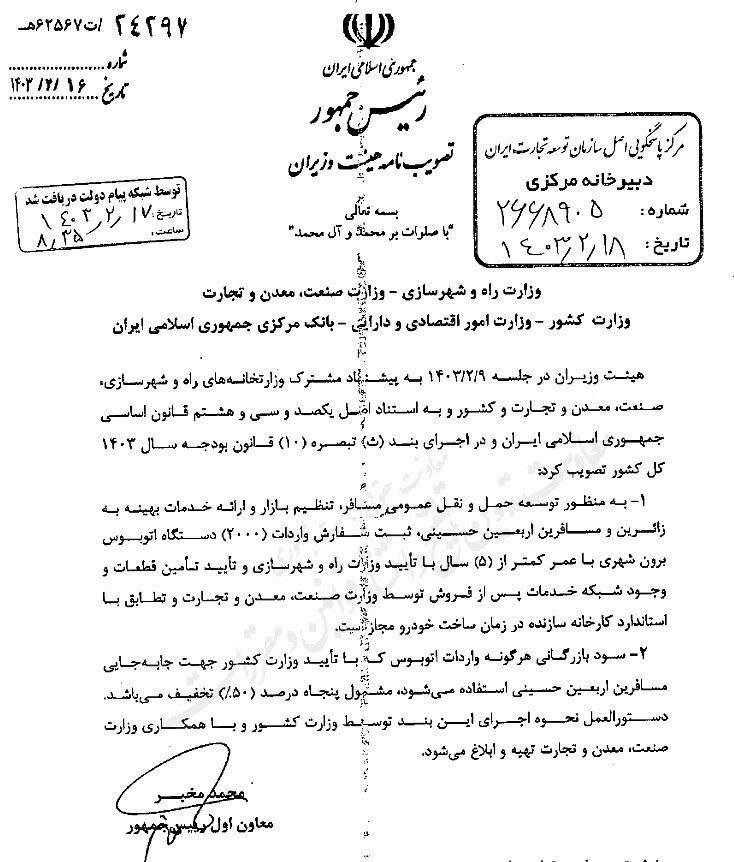 ۲۴۲۹۷ /ت۶۲۵۶۷هـ
شماره
تاریخ ۱۴۰۳/۲/۱۶
جمهوری اسلامی ایران
رئیس جمهور
تصویب نامه هیئت وزیران
مرکز پاسخگویی اصل سازمان توسعه تجارت ایران
دبیرخانه مرکزی
شماره: ۲۶۶۸۹۰۵
تاریخ: ۱۴۰۳/۲/۱۸
توسط شبکه پیام دولت دریافت شد
تاریخ: ۱۴۰۳/۲/۱۷
ساعت: ۸/۳۵
بسمه تعالی
"با صلوات بر محمد و آل محمد"
وزارت راه و شهرسازی – وزارت صنعت، معدن و تجارت
وزارت کشور – وزارت امور اقتصادی و دارایی – بانک مرکزی جمهوری اسلامی ایران
هیئت وزیران در جلسه ۱۴۰۳/۲/۹ به پیشنهاد مشترک وزارتخانه‌های راه و شهرسازی،
صنعت، معدن و تجارت و کشور و به استناد اصل یکصد و سی و هشتم قانون اساسی
جمهوری اسلامی ایران و در اجرای بند (ث) تبصره (۱۰) قانون بودجه سال ۱۴۰۳
کل کشور تصویب کرد:
۱- به منظور توسعه حمل و نقل عمومی مسافر، تنظیم بازار و ارائه خدمات بهینه به
زائرین و مسافرین اربعین حسینی، ثبت سفارش واردات (۲۰۰۰) دستگاه اتوبوس
برون شهری با عمر کمتر از (۵) سال با تأیید وزارت راه و شهرسازی و تأیید تأمین قطعات و
وجود شبکه خدمات پس از فروش توسط وزارت صنعت، معدن و تجارت و تطابق با
استاندارد کارخانه سازنده در زمان ساخت خودرو مجاز است.
۲- سود بازرگانی هرگونه واردات اتوبوس که با تأیید وزارت کشور جهت جابه‌جایی
مسافرین اربعین حسینی استفاده می‌شود، مشمول پنجاه درصد (۵۰٪) تخفیف می‌باشد.
دستورالعمل نحوه اجرای این بند توسط وزارت کشور و با همکاری وزارت
صنعت، معدن و تجارت تهیه و ابلاغ می‌شود.
محمد مخبر
معاون اول رئیس جمهور